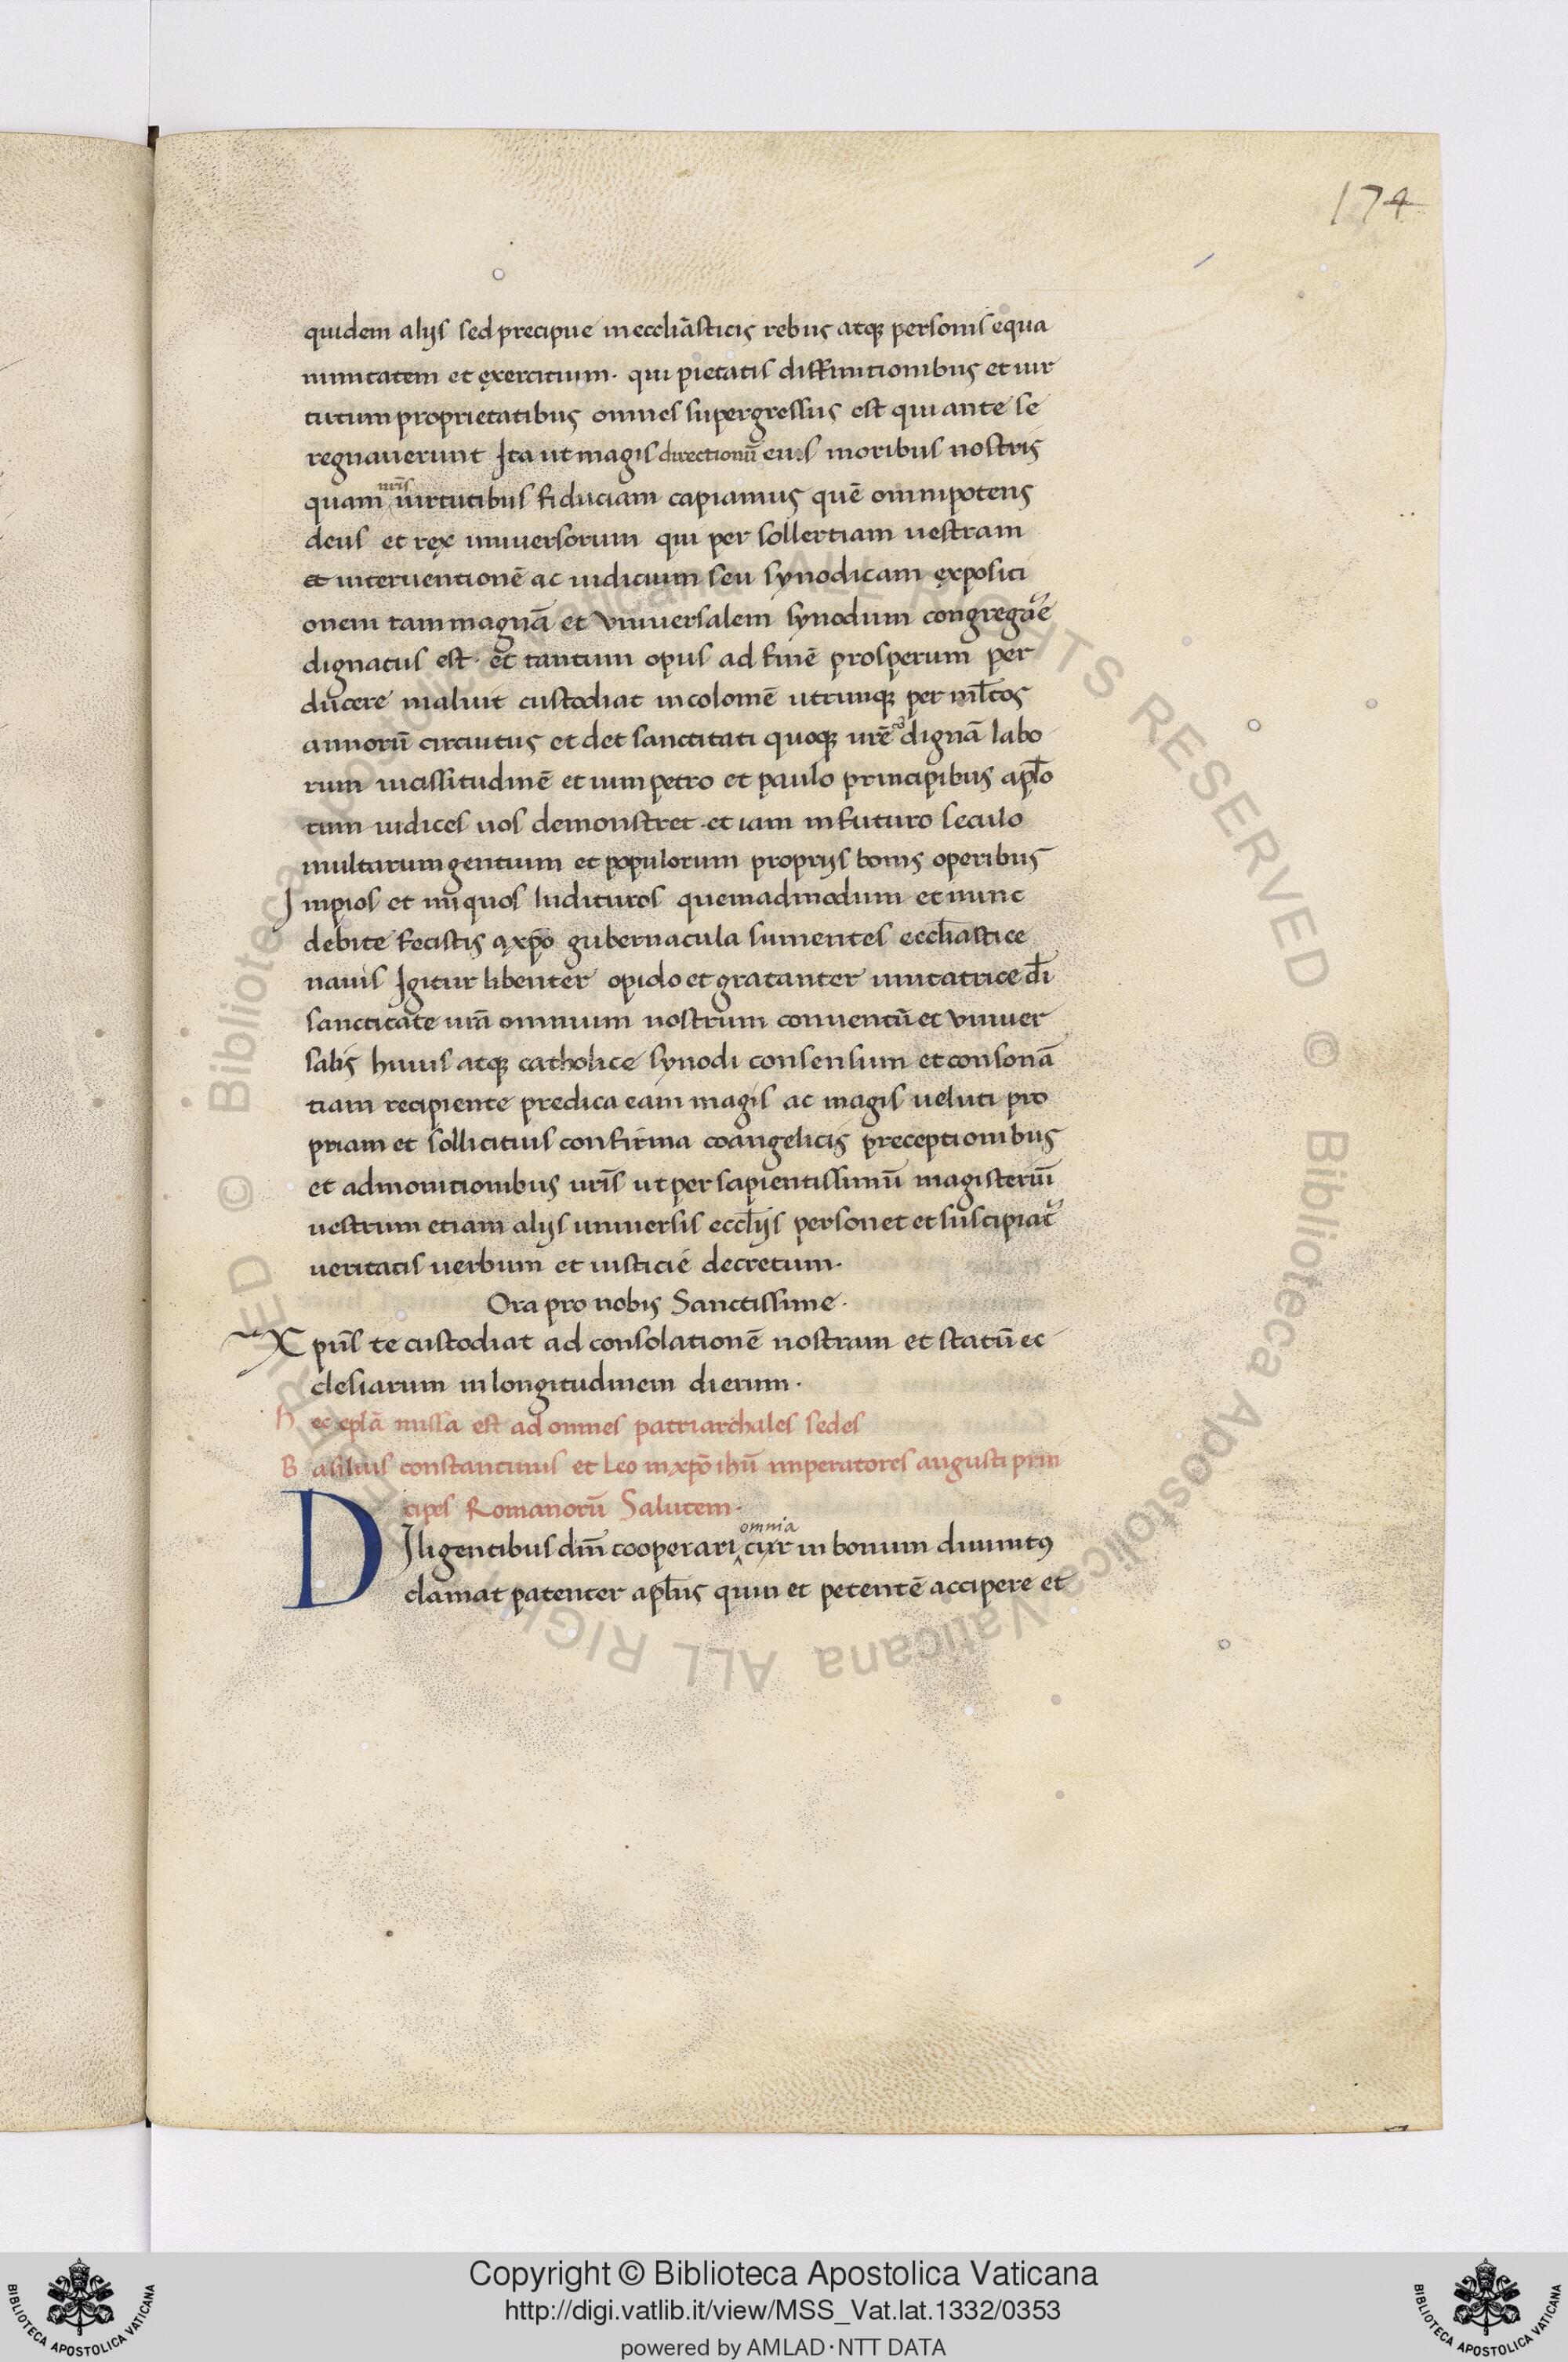 174
quidem alijs sed precipue in eccliāsticis rebus atq; personis equa
nimitatem et exercitium · qui pietatis diffinitionibus et uir
tutum proprietatibus omnes supergressus est qui ante se
regnauerunt Ita ut magis directionū eius moribus nostris
nrīs
quam uirtutibus fiduciam capiamus quē omnipotens
deus et rex uniuersorum qui per sollertiam uestram
et interuentionē ac iudicium seu synodicam expositi
onem tam magnā et vniuersalem synodum congregare
dignatus est · et tantum opus ad finē prosperum per
ducere maluit custodiat incolomē utrunq; per ml̄tos
annorū circuitus et det sanctitati quoq; urē dignā labo
rum uicissitudinē et cum petro et paulo principibus apl̄o
rum iudices uos demonstret · et iam in futuro seculo
multarum gentium et populorum proprijs bonis operibus
Inpios et iniquos iudicturos quemadmodum et nunc
debite fecistis a xp̄o gubernacula sumentes eccl̄iastice
nauis Igitur libenter opido et gratanter imitatrice dī
sanctitate urā omnium nostrum conuentū et vniuer
salis huius atq; catholice synodi consensum et consonā
tiam recipiente predica eam magis ac magis ueluti pro
priam et sollicitius confirma coangelicis preceptionibus
et admonitionibus urīs ut per sapientissimū magisteriū
uestrum etiam alijs uniuersis eccl̄ijs personet et suscipiat᷑
ueritatis uerbum et iusticie decretum ·
Ora pro nobis Sanctissime ·
Xpūs te custodiat ad consolationē nostram et statū ec
clesiarum in longitudinem dierum ·
Hec eplā missa est ad omnes patriarchales sedes
Basilius constantinus et Leo in xpō ihū imperatores augusti prin
cipes Romanorū Salutem ·
omnia
DIligentibus dm̄ cooperari cur in bonum diuinitꝰ
clamat patenter apl̄us quin et petentē accipere et
Copyright © Biblioteca Apostolica Vaticana
http://digi.vatlib.it/view/MSS_Vat.lat.1332/0353
powered by AMLAD·NTT DATA
BIBLIOTECA APOSTOLICA VATICANA
BIBLIOTECA APOSTOLICA VATICANA
© Biblioteca Apostolica Vaticana ALL RIGHTS RESERVED © Biblioteca Apostolica Vaticana ALL RIGHTS RESERVED